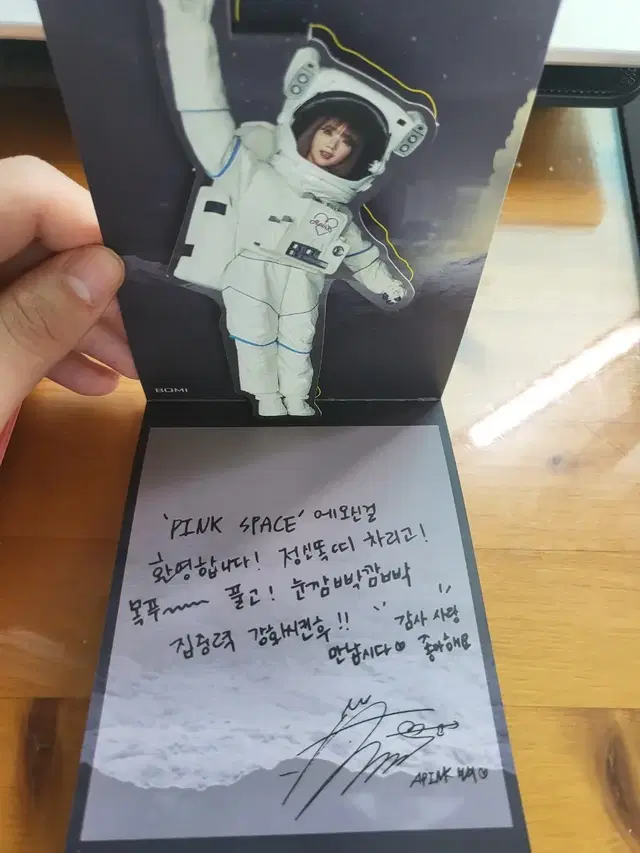 BOMI
'PINK SPACE'에 오신걸
환영합니다! 정신똑띠 차리고!
목푸~~~ 풀고! 눈깜빡깜빡
집중력 강화시킨후!! "감사 사랑
만납시다♡ 좋아해요"
APINK 보미♡